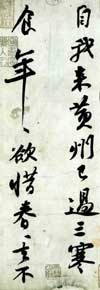 自我來黃州已過三寒
食年〻欲惜春〻去不